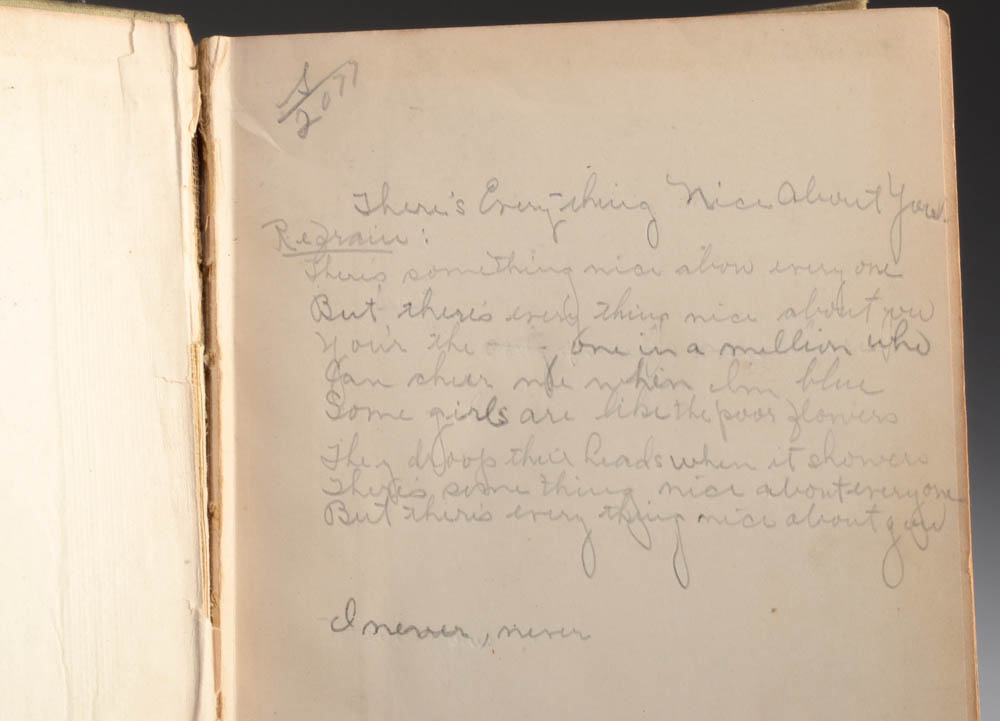 There's Every-thing Nice About You.
Refrain:
There's something nice abou every one
But, there's every thing nice about you
Your the one in a million who
Can cheer me when Im blue
Some girls are like the poor flowers
They droop their heads when it showers
There's some thing nice about everyone
But there's every thing nice about you
I never, never